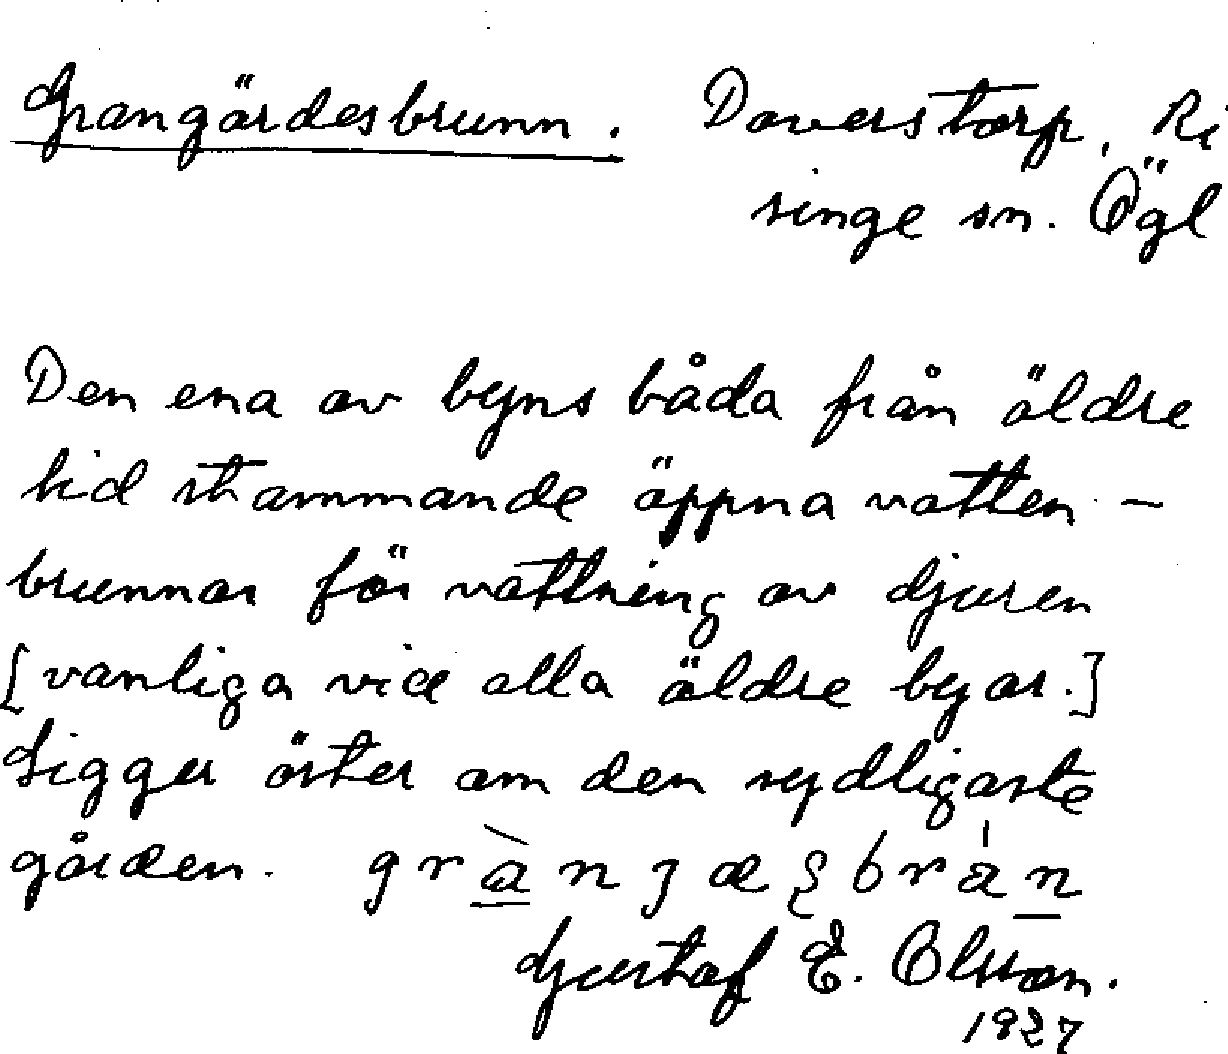 Grangärdesbrunn. Daverstorp, Ri
singe sn. Ögl
Den ena av byns båda från äldre
tid stammande öppna vatten-
brunnar för vattning av djuren
[vanliga vid alla äldre byar.]
Ligger öster om den sydligaste
gården.
Gustaf E. Olsson.
1927